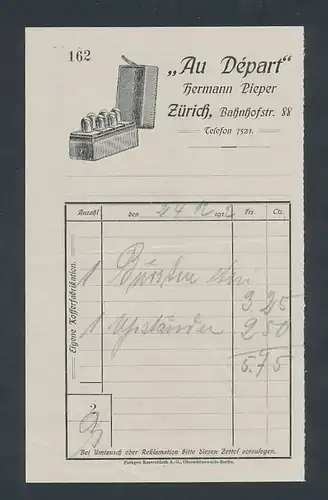 162
„Au Départ“
Hermann Pieper
Zürich, Bahnhofstr. 88
Telefon 7521.
Anzahl den 24 191 Frs. Cts.
Eigene Kofferfabrikation.
1 Bürsten 3 25
1 Uhrständer 2 50
5.75
2
Bei Umtausch oder Reklamation bitte diesen Zettel vorzulegen.
Paragon Kassenblock A.-G., Oberschöneweide-Berlin.